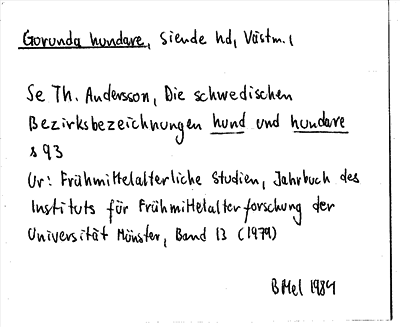 Gorunda hundare, Siende hd, Västm.,
Se Th. Andersson, Die schwedischen
Bezirksbezeichnungen hund und hundare
s 93
Ur: Frühmittelalterliche Studien, Jahrbuch des
Instituts für Frühmittelalterforschung der
Universität Münster, Band 13 (1979)
BMel 1984